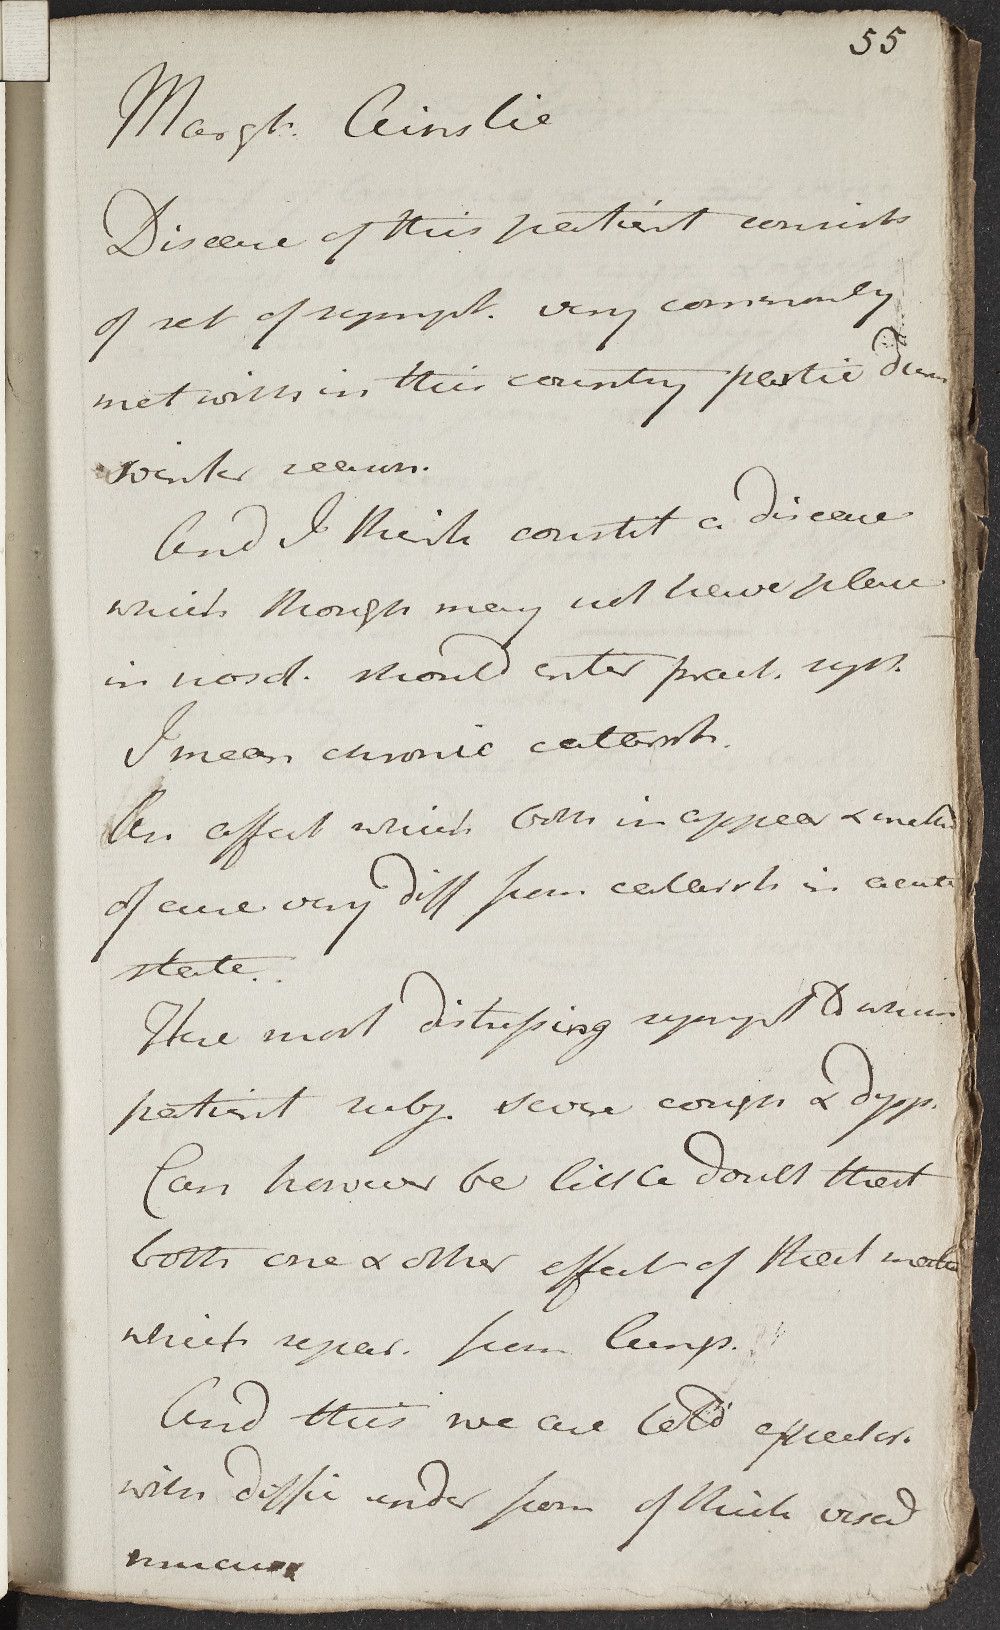 55
Margt. Ainslie
Disease of this patient consists
of set of sympt. very commonly
met with in this country partic dur
winter season.
And I think constit a disease
which though may not have place
in nosol. should enter pract. syst.
I mean chronic catarrh.
An affect which both in appear & meth
of cure very diff from catarrh in acute
state.
Here most distressing sympt to which
patient subj. severe cough & dysp.
Can however be little doubt that
both one & other effect of that matter
which separ. from lungs.
And this we are told expector.
with diffic under form of thick viscid
mucus